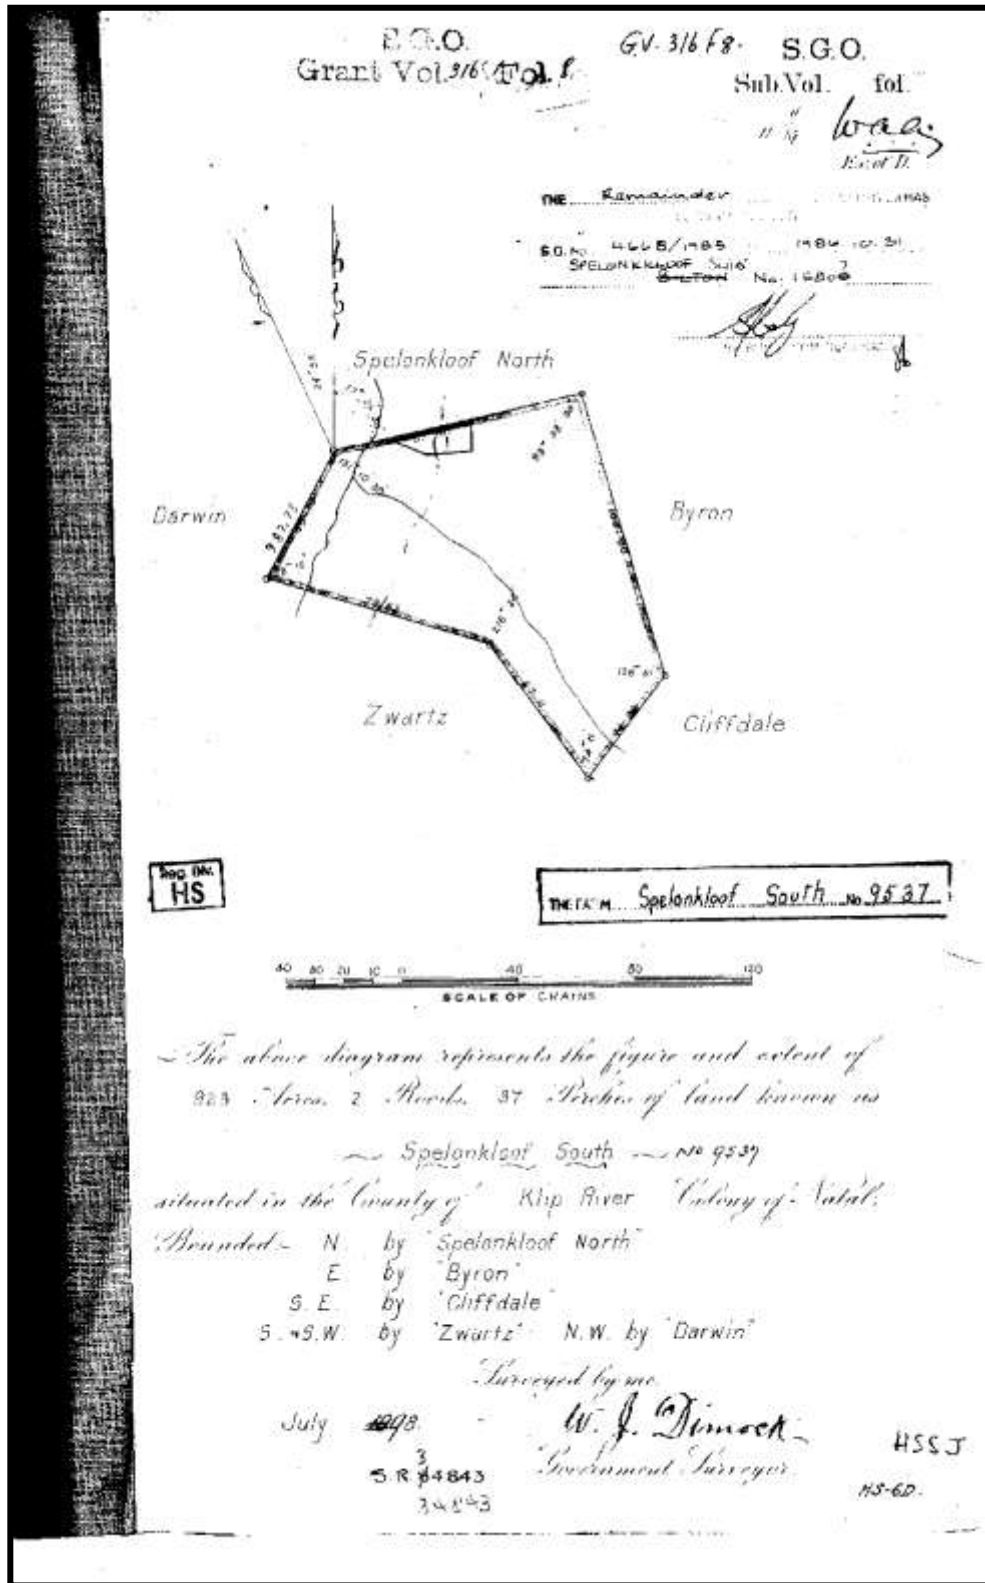 S.G.O.
Grant Vol. 316 Fol. 8.
GV. 316 F8.
S.G.O.
Sub.Vol. fol.
Ex. of D.
THE Remainder
S.G. No. 4668/1985 1986.10.31
SPELONKKLOOF SUID
BILTON No. 1680
Spelonkloof North
Darwin
Byron
Zwartz
Cliffdale
Reg. Div.
HS
THE FARM Spelonkloof South No 9537
40 30 20 10 0 40 80 120
SCALE OF CHAINS
The above diagram represents the figure and extent of
923 Acres. 2 Roods. 37 Perches of land known as
Spelonkloof South No 9537
situated in the County of Klip River Colony of Natal.
Bounded N. by "Spelonkloof North"
E by "Byron"
S. E. by "Cliffdale"
S. & S.W. by "Zwartz" N.W. by "Darwin"
Surveyed by me
July 1898.
W. J. Dimock
Government Surveyor.
3
S.R. 84843
34843
HSSJ
HS-6D.